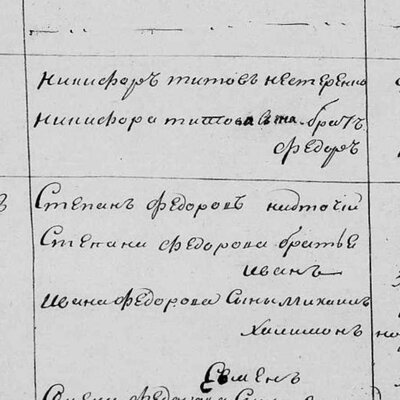 Никифоръ титовъ нестеренко
Никифора титова братъ
Федоръ
Степанъ Федоровъ
Степана Федорова братья
Иванъ
Ивана Федорова сыны Михаилъ
Халимонъ
Семенъ